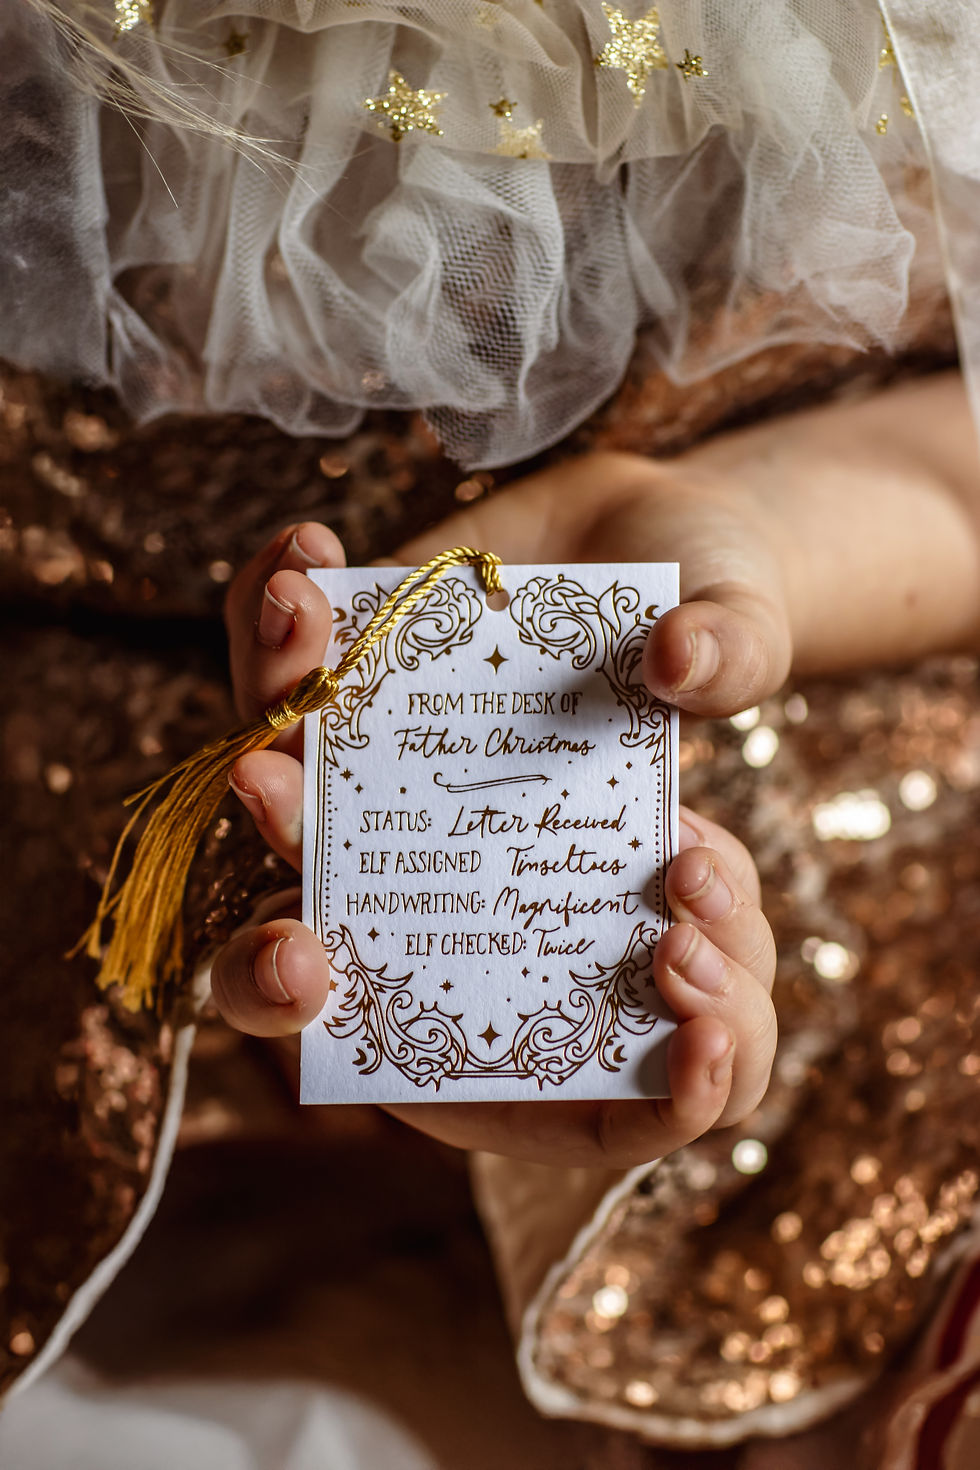 FROM THE DESK OF
Father Christmas
STATUS: Letter Received
ELF ASSIGNED Tinseltoes
HANDWRITING: Magnificent
ELF CHECKED: Twice